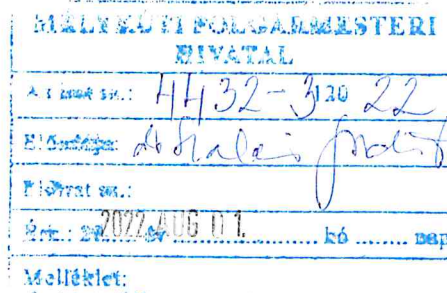 MÉLYKÚTI POLGÁRMESTERI
HIVATAL
Az irat sz.: 4432-3/20 22
Előadója: dr. Kalais Judit
Előirat sz.:
Érk.: 20 2022 AUG 01. év .......... kó ........ nap
Melléklet: